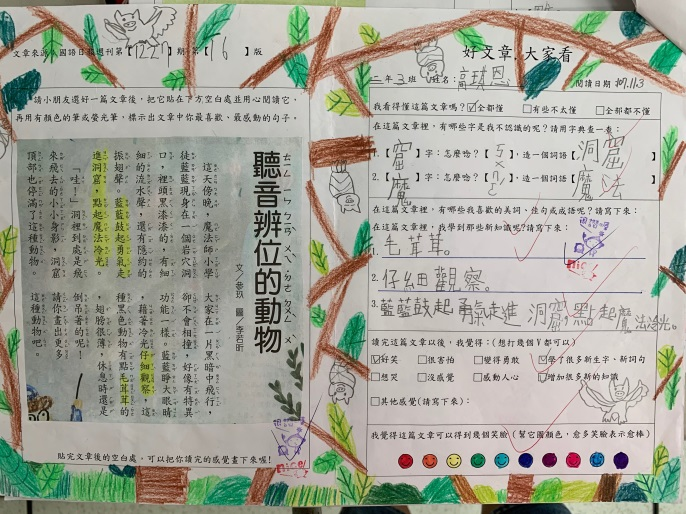 文章來源：國語日報週刊第【1227】期第【16】版
請小朋友選好一篇文章後，把它貼在下方空白處並用心閱讀它，
再用有顏色的筆或螢光筆，標示出文章中你最喜歡、最感動的句子。
聽音辨位的動物
文／夢玖 圖／李若昕
這天傍晚，魔法師小學
徒藍藍現身在一個岩穴洞
口，裡頭黑漆漆的，有細
細的流水聲，還有隱約的
振翅聲。藍藍鼓起勇氣走
進洞窟，點起魔法冷光。
「哇！」洞裡到處是飛
來飛去的小小身影，洞窟
頂部也停滿了這種動物。
大家在一片黑暗中飛行，
卻不會相撞，好像有特異
功能一樣。藍藍睜大眼睛
，藉著冷光仔細觀察，這
種黑色動物有點毛茸茸的
，翅膀很薄，休息時還是
倒吊著的呢！
請你畫出更多
這種動物吧。
貼完文章後的空白處，可以把你讀完的感覺畫下來喔！
好文章，大家看
二年3班 姓名：高 恩 閱讀日期：107.11.3
我看得懂這篇文章嗎？☑全都懂 □有些不太懂 □全部都不懂
在這篇文章裡，有哪些字是我不認識的呢？請用字典查一查：
1.【窟】字：怎麼唸？【ㄎㄨ】，造一個詞語【洞窟】
2.【魔】字：怎麼唸？【ㄇㄛˊ】，造一個詞語【魔法】
在這篇文章裡，有哪些我喜歡的美詞、佳句或成語呢？請寫下來：
在這篇文章裡，我學到那些新知識呢？請寫下來：
1.毛茸茸。
2.仔細觀察。
3.藍藍鼓起勇氣走進洞窟，點起魔法冷光。
讀完這篇文章以後，我覺得：(想打幾個V都可以)
☑好笑 □很害怕 □變得勇敢 ☑學了很多新生字、新詞句
□想哭 □沒感覺 □感動人心 ☑增加很多新的知識
□其他感覺(請寫下來)：
我覺得這篇文章可以得到幾個笑臉(幫它圈顏色，愈多笑臉表示愈棒)